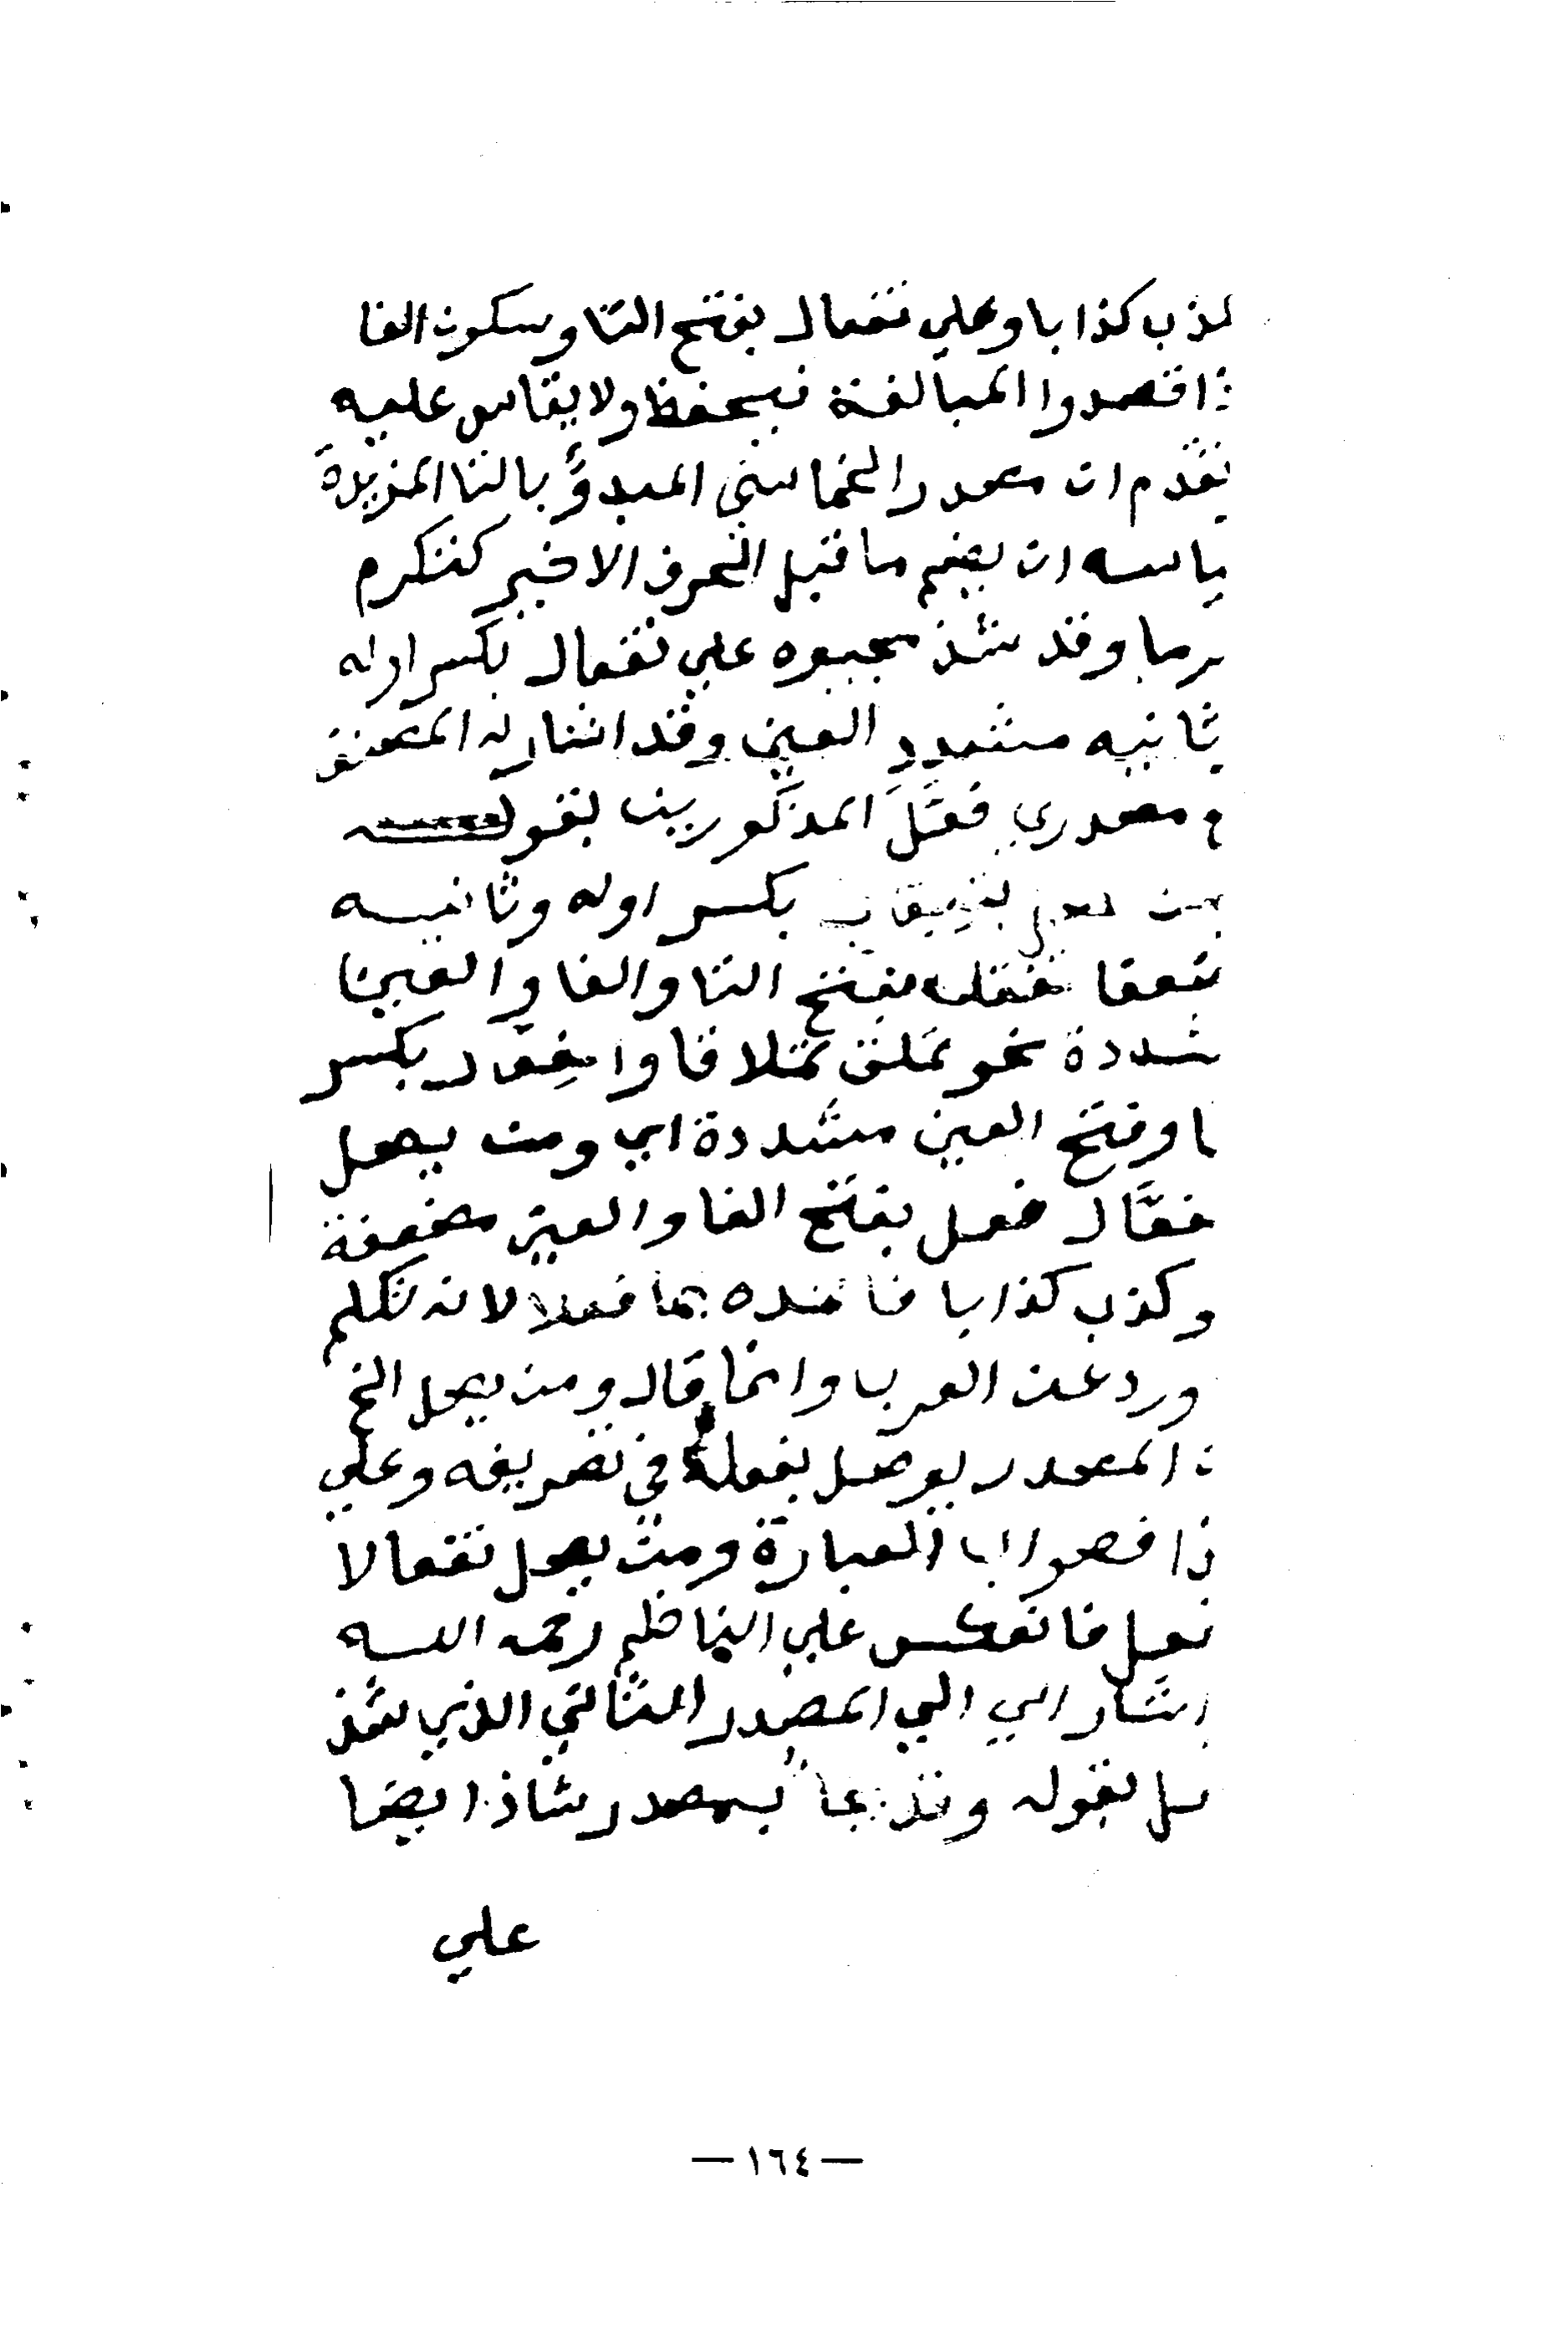 كذب كذابا وعلي تفعال بفتح التا وسكون الفا
ذا قصدوا المبالغة فيحفظ ولا يقاس عليه
تقدّم ان مصدر الخماسي المبدوّ بالتا المزيدة
ياسه ان يضم ما قبل الحرف الاخير كتكرم
رما وقد شذ مجيوه علي تفعال بكسر اوله
ثانيه مشدد العين وقد اشار له المصنف
ع مصدري فعّل المذكورين بقوله
بكسر اوله وثانيه
تفعل بفتح التا والفا والعين
شددة نحو تملق تملاقا والفعال بكسر
ا وفتح العين مشددة اي ومن يصل
فعّال فعل بفتح الفا والعين مخففة
وكذب كذابا لانه تكلم
ورد عن العرب وانما قال ومن يصل الخ
ن المصدر يوصل بفعله في تصريفه وعلي
ذا فصواب العبارة ومن يصل تفعالا
تفعل فانعكس علي الناظم رحمه الله
اشار الي المصدر الثاني الذي شذ
بقوله وقد يجا بمصدر شاذ ايضا
علي
— ١٦٤ —